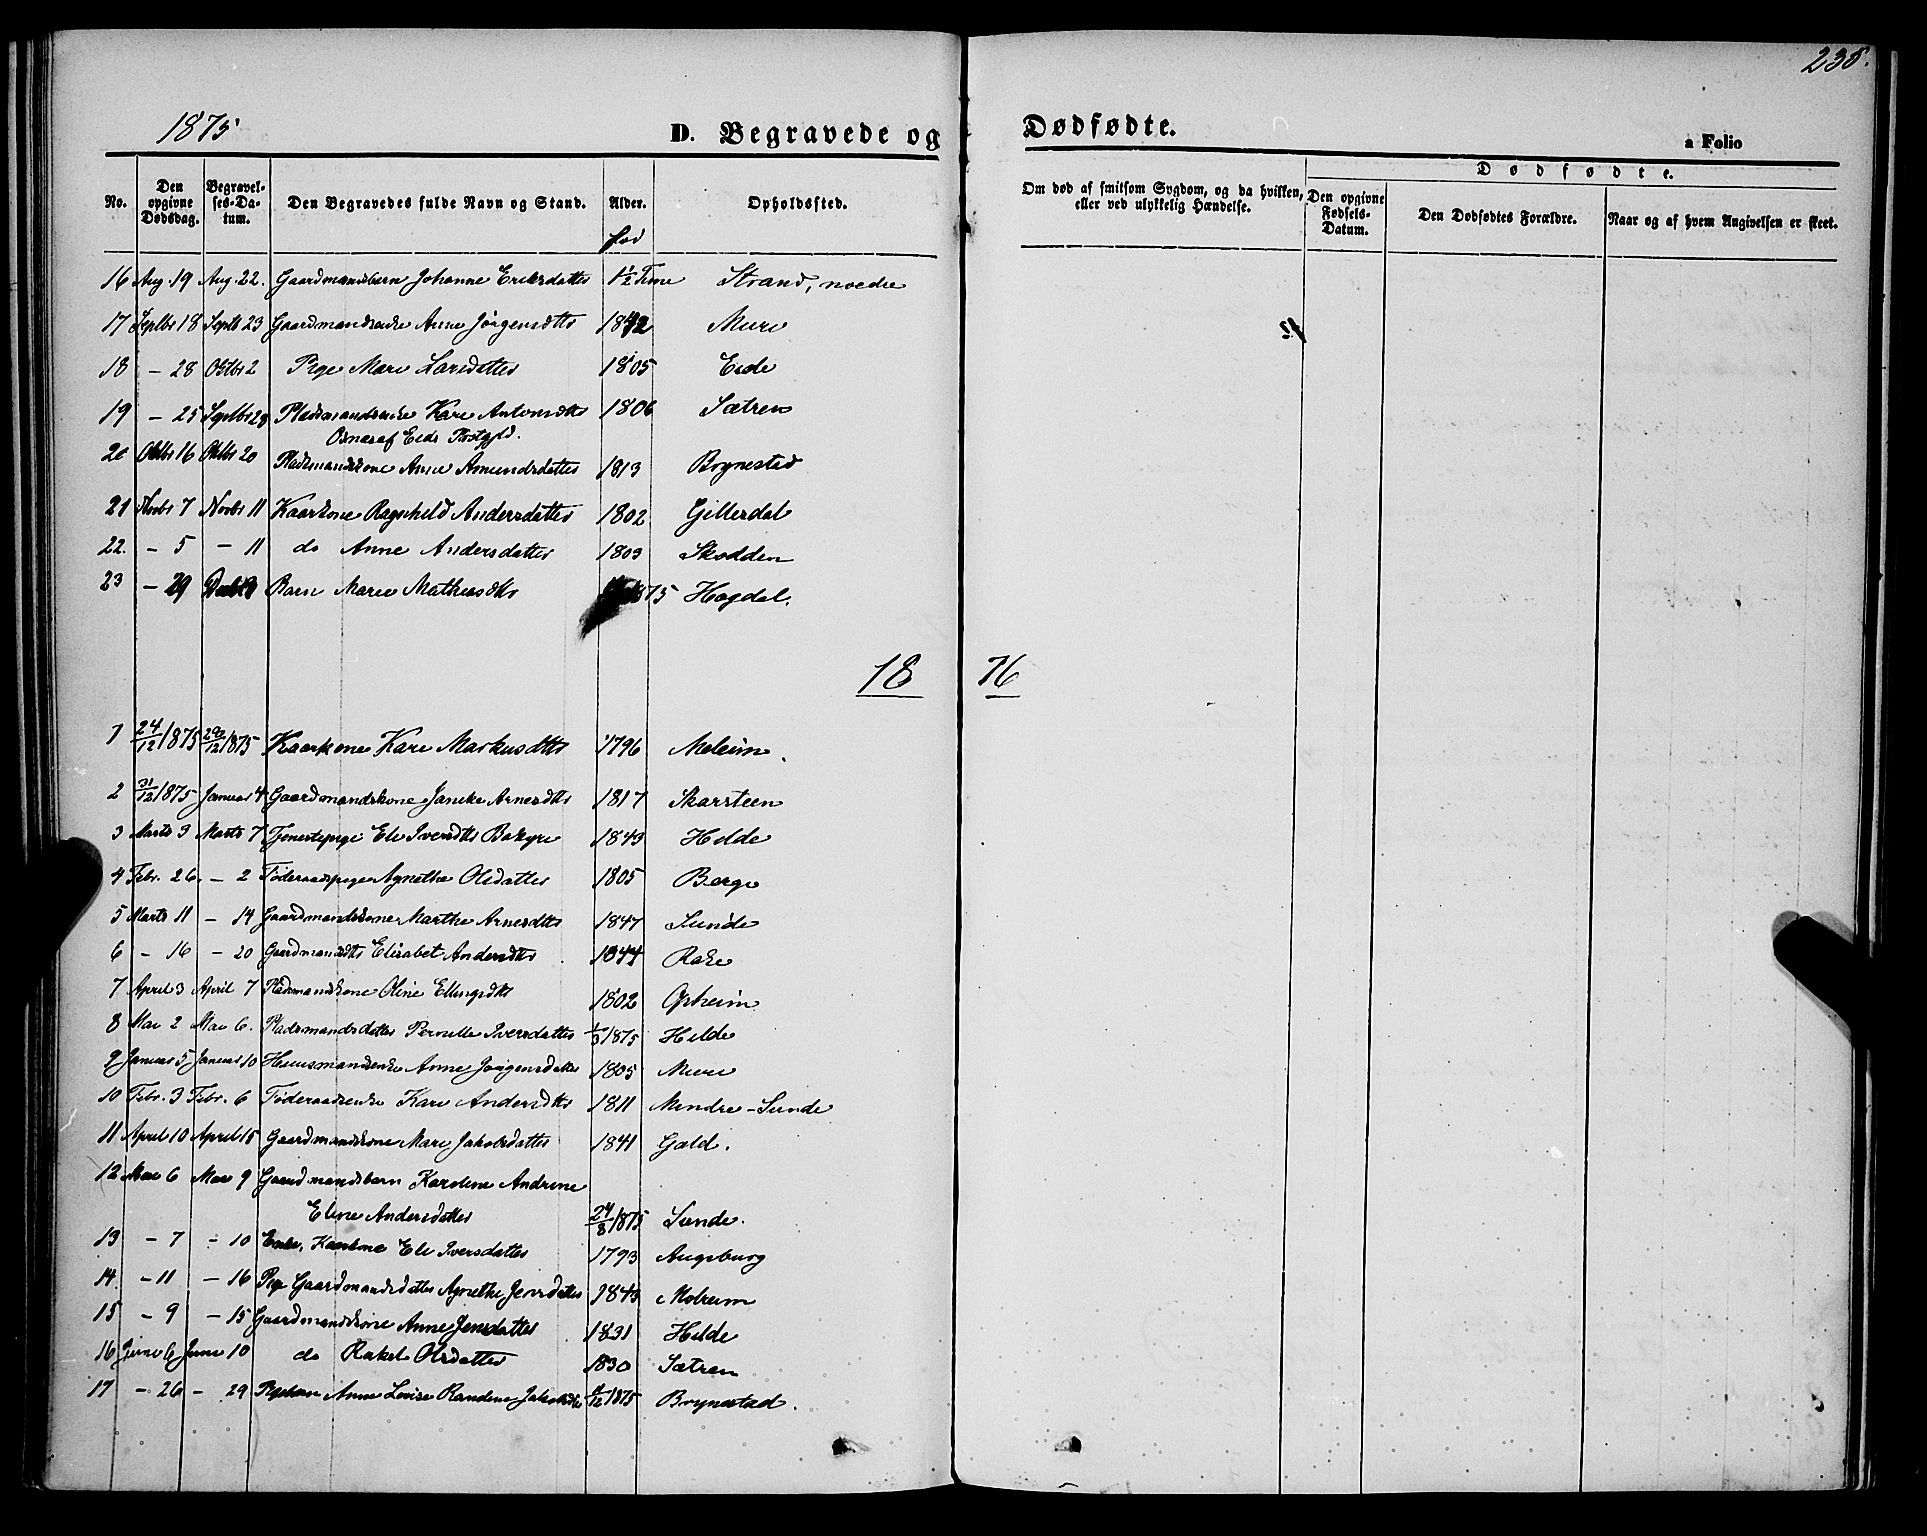 238.
1875
D. Begravede og Dødfødte.
a Folio
No. Den opgivne Dødsdag. Begravelses-Datum. Den Begravedes fulde Navn og Stand. Alder. Opholdssted. Om død af smitsom Sygdom, og da hvilken, eller ved ulykkelig Hændelse. Dødfødte. Den opgivne Fødsels-Datum. Den Dødfødtes Forældre. Naar og af hvem Angivelsen er skeet.
16 Aug. 19 Aug. 22. Gaardmandsbarn Johanne Eriksdatter 1½ Time Strand, nordre
17 Septbr 18 Septb 23 Gaardmandsenke Anne Jørgensdttr 1842 Muri
18 - 28 Oktbr 2 Pige Mari Larsdatter 1805 Eide
19 - 25 Septbr 28 Pladsmandsenke Kari Antonsdttr 1806 Sætren
20 Oktbr 16 Oktbr 20 Pladsmandskone Anne Amundsdatter 1813 Brynestad
21 Novbr 7 Novbr 11 Kaarkone Ragnhild Andersdatter 1802 Gillerdal
22. - 5 - 11 do Anne Andersdatter 1803 Skodden
23 - 29 Barn Marie Mathiasdttr 1875 Hogdal.
1876
1 24/12 1875 29/12 1875 Kaarkone Kari Markusdttr 1796 Meleim
2 31/12 1875 Januar 4 Gaardmandskone Janike Arnesdttr 1817 Skarsteen
3 Marts 3 Marts 7 Tjenestepige Eli Iversdttr Bakyre 1843 Hilde
4 Febr. 26. - 2 Føderaadspige Agnethe Olsdatter 1805 Berge
5 Marts 11 - 14 Gaardmandskone Marthe Arnesdttr 1847 Sunde
6 - 16 - 20 Gaardmandsdttr Elisabet Andersdttr 1844 Rake
7 April 3 April 7 Pladsmandskone Oline Ellingsdttr 1802 Opheim
8 Mai 2 Mai 6. Pladsmandsdatter Pernille Iversdatter 1875 Hilde
9 Januar 5 Januar 10 Huusmandsenke Anne Jørgensdatter 1805 Muri
10 Febr. 3 Febr. 6 Føderaadsenke Kari Andersdttr 1811 Mindre-Sunde
11 April 10 April 15 Gaardmandskone Mari Jakobsdatter 1841 Gald.
12 Mai 6 Mai 9 Gaardmandsbarn Karoline Andrine
Eline Andersdatter 24/8 1875 Sunde.
13 - 7 - 10 Enke, Kaarkone Eli Iversdatter 1793 Augsburg
14 - 11 - 16 Pige Gaardmandsdatter Agnethe Jensdatter 1843 Melheim
15 - 9 - 15 Gaardmandskone Anne Jensdatter 1831 Hilde
16 Juni 6 Juni 10 do Rakel Olsdatter 1830 Sætren
17 - 26 - 29 Pigebarn Anne Lovise Randine Jakobsdtr 1875 Brynestad.